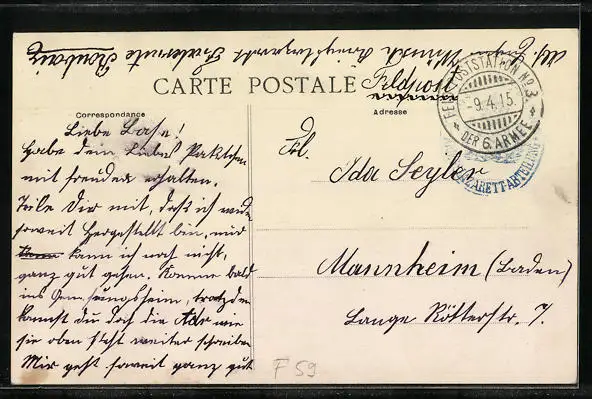 Abs. Gefr. Wünsch Kriegslazarett Fraternité Roubaix
CARTE POSTALE
Feldpost
Correspondance
Adresse
FELDPOSTSTATION No 3.
9.4.15.
* DER 6. ARMEE *
LAZARETT-ABTEILUNG
Liebe Base!
Habe dein liebes Paktchen
mit freuden erhalten.
Teile Dir mit, daß ich nun
soweit hergestellt bin, nur
kann ich noch nicht,
ganz gut gehen. Komme bald
ins Genesungsheim, trotzdem
kannst du doch die Adr wie
sie oben steht weiter schreiben
Mir geht soweit ganz gut
Frl.
Ida Seyler
Mannheim (Baden)
Lange Rötterstr. 7.
F 59